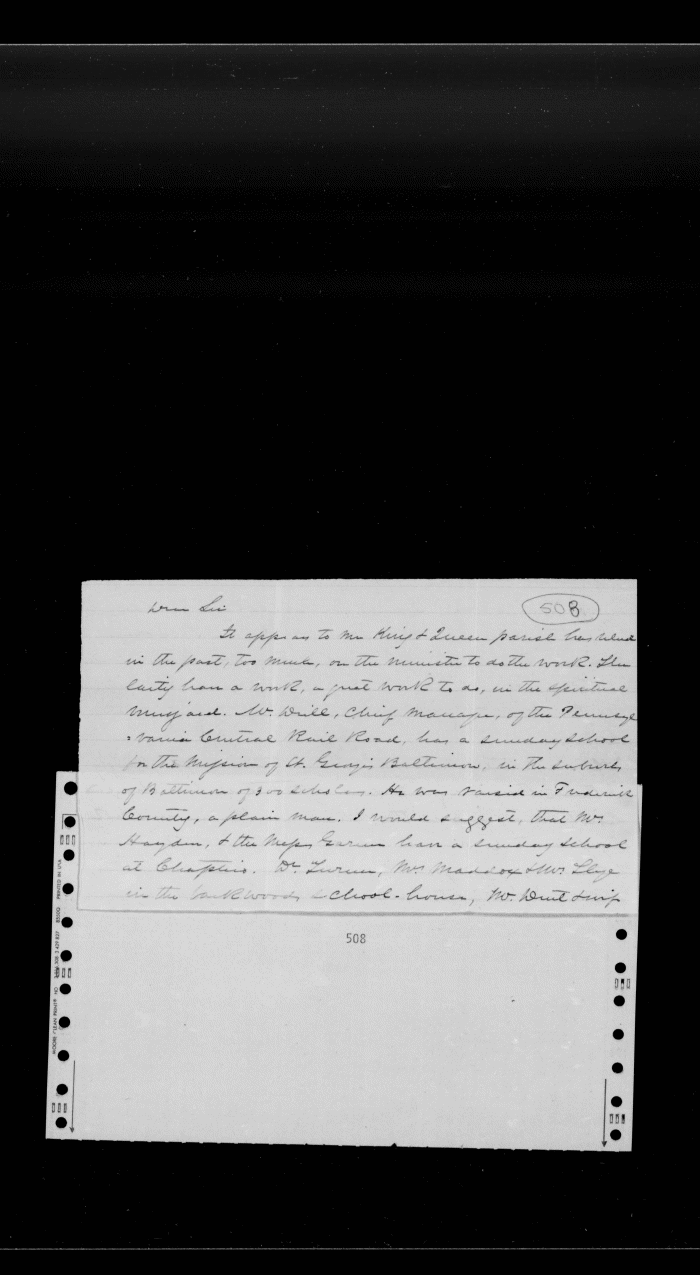 508
Dear Sir
It appears to me King & Queen parish has
in the past, too much, on the minister to do the work. The
laity have a work, a great work to do, in the spiritual
Mr. Drill, Chief Manager, of the Pennsyl
=vania Central Rail Road, has a sunday school
for the Mission of St. Georges Baltimore, in the suburbs
of Baltimore of 300 scholars. He was raised in Frederick
County, a plain man. I would suggest, that Mr.
Hayden, & the Misses have a sunday school
at Chaptico. Dr. Turner, Mr. Maddox & Mr. Slye
in the school-house, Mr. Dent & wife
508
PRINTED IN U.S.A.